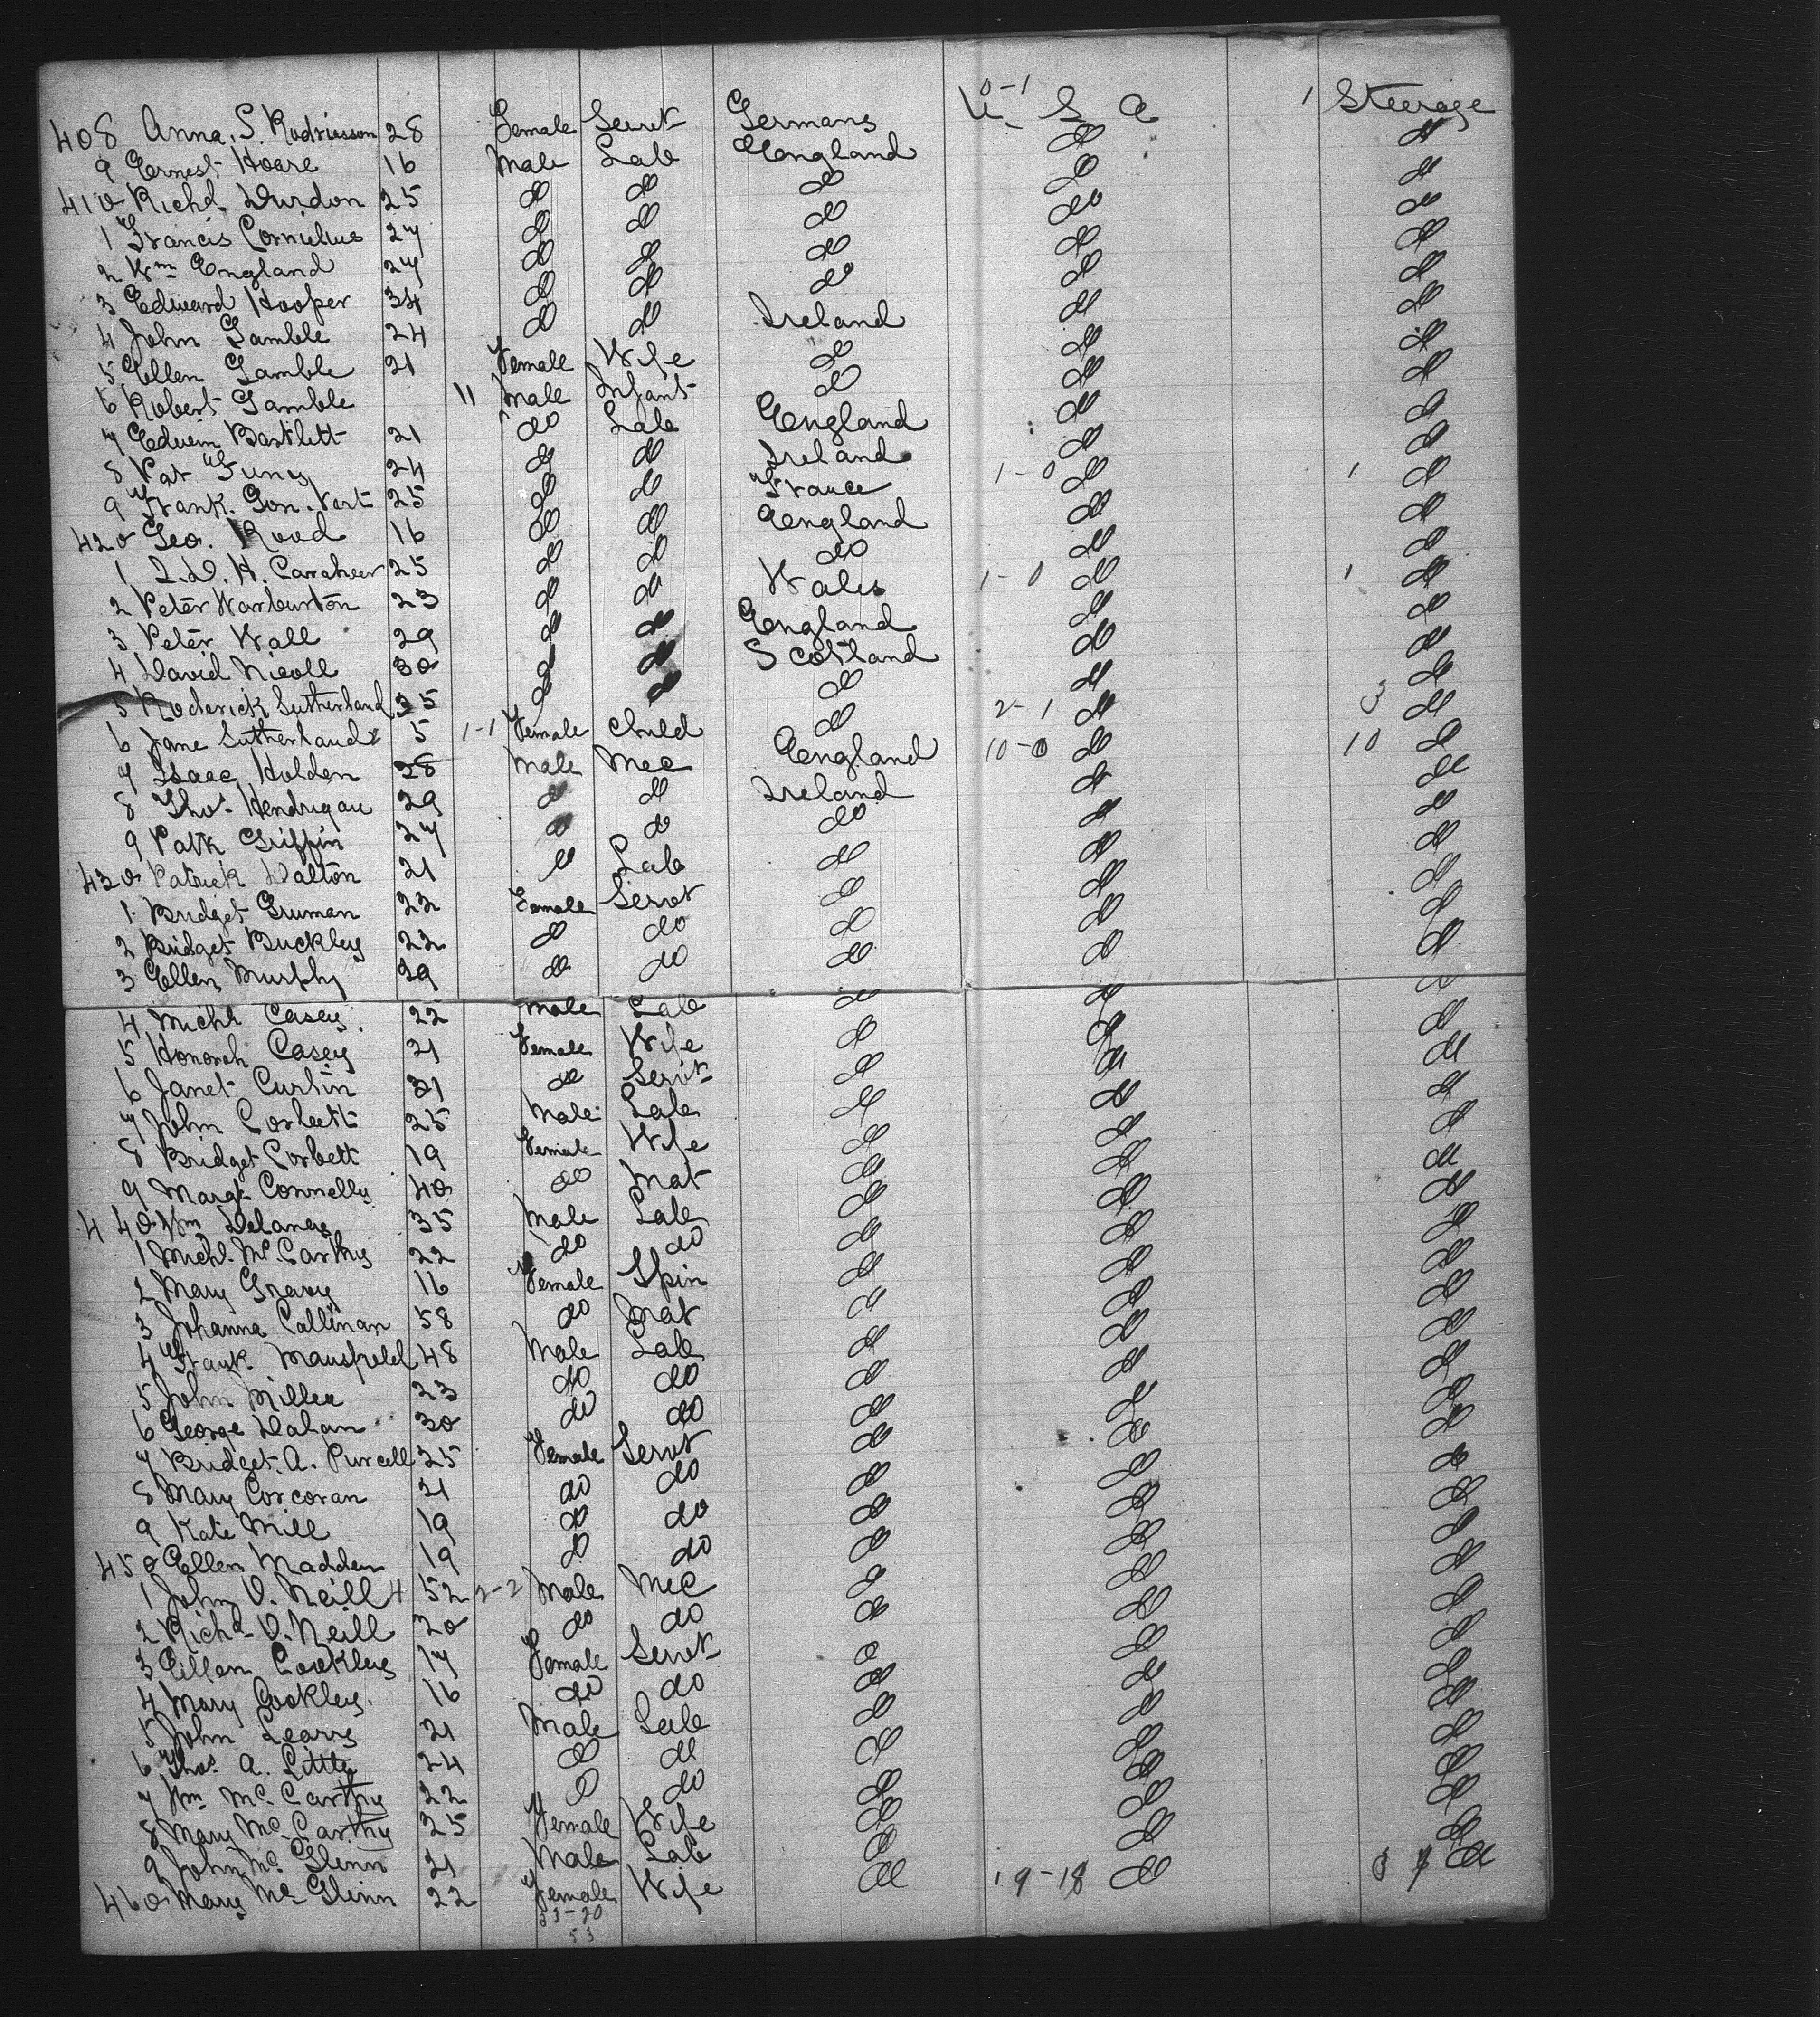 408 Anna. S. Rodriasson 28 Female Servt Germany 0-1 U. S. A 1 Steerage
9 Ernest Hoare 16 Male Lab England do do
410 Richd Durdon 25 do do do do do
1 Francis Cornielius 27 do do do do do
2 Wm England 27 do do do do do
3 Edward Hooper 34 do do do do do
4 John Gamble 24 do do Ireland do do
5 Ellen Gamble 21 Female Wife do do do
6 Robert Gamble 11 Male Infant do do do
7 Edwin Bartlett 21 do Lab England do do
8 Pat 24 do do Ireland do do
9 Frank. Gon. Vert 25 do do France 1-0 do 1 do
420 Geo. Rood 16 do do England do do
1 H. Caraheer 25 do do do do do
2 Peter Warburton 23 do do Wales 1-0 do 1 do
3 Peter Wall 29 do do England do do
4 David Nicoll 30 do do Scotland do do
5 Roderick Sutherland 35 do do do do do
6 Jane Sutherland 5 1-1 Female Child do 2-1 do 3 do
7 Isaac Holden 28 Male Mec England 10-0 do 10 do
8 Thos. Hendrigan 29 do do Ireland do do
9 Patk Griffin 27 do do do do do
430 Patrick Dalton 21 do Lab do do do
1 Bridget Gruman 22 Female Servt do do do
2 Bridget Buckley 22 do do do do do
3 Ellen Murphy 29 do do do do do
4 Michl Casey 22 Male Lab do do do
5 Honorah Casey 21 Female Wife do do do
6 Janet Curtin 21 do Servt do do do
7 John Corbett 25 Male Lab do do do
8 Bridget Corbett 19 Female Wife do do do
9 Margt Connelly 40 do Mat do do do
440 Wm Delaney 35 Male Lab do do do
1 Michl. McCarthy 22 do do do do do
2 Mary Gravy 16 Female Spin do do do
3 Johanna Callinan 58 do Mat do do do
4 Frank Mansfield 48 Male Lab do do do
5 John Miller 23 do do do do do
6 George Dahan 30 do do do do do
7 Bridget. A. Purcell 25 Female Servt do do do
8 Mary Corcoran 21 do do do do do
9 Kate Mill 19 do do do do do
450 Ellen Madden 19 do do do do do
1 John O. Neill 4 52 2-2 Male Mec do do do
2 Richd O. Neill 20 do do do do do
3 Ellen Cookley 17 Female Servt do do do
4 Mary Cookley 16 do do do do do
5 John Leary 21 Male Lab do do do
6 Thos A. Little 24 do do do do do
7 Wm McCarthy 22 do do do do do
8 Mary McCarthy 25 Female Wife do do do
9 John McGlinn 21 Male Lab do do do
460 Mary McGlinn 22 Female Wife do 19-18 do 37 do
33-20
53